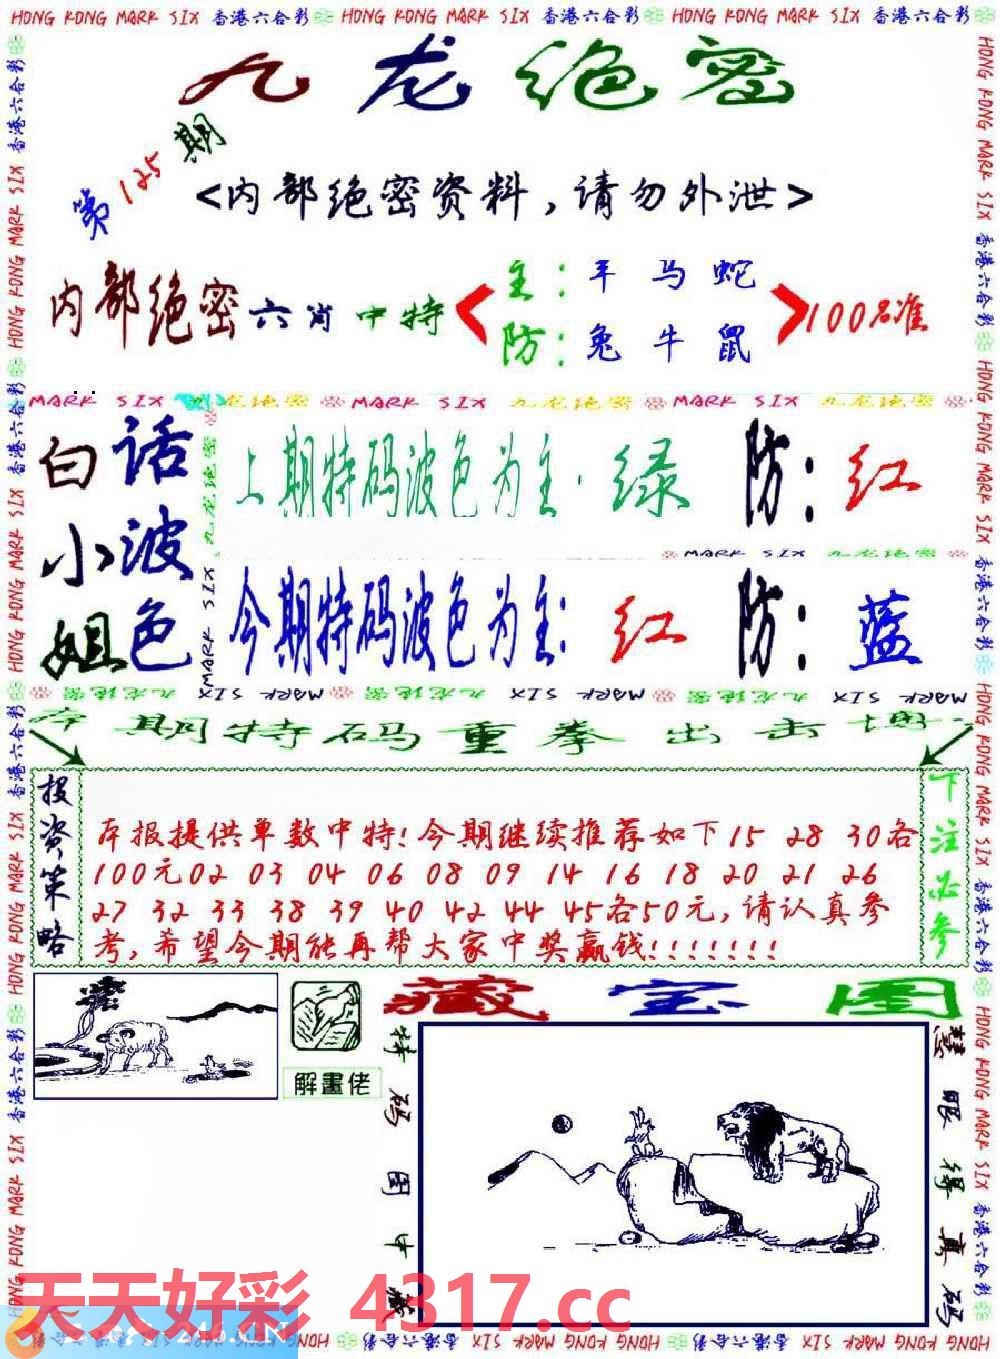 HONG KONG MARK SIX 香港六合彩 HONG KONG MARK SIX 香港六合彩 HONG KONG MARK SIX 香港六合彩
九龙绝密
第125期
<内部绝密资料,请勿外泄>
内部绝密六肖中特
主:羊 马 蛇
防:兔 牛 鼠
100%准
MARK SIX 九龙绝密 MARK SIX 九龙绝密 MARK SIX 九龙绝密
白小姐
话波色
上期特码波色为主·绿 防:红
MARK SIX 九龙绝密
今期特码波色为主:红 防:蓝
MARK SIX 九龙绝密 MARK SIX 九龙绝密 MARK SIX 九龙绝密 MARK SIX
本期特码重拳出击
投资策略
本报提供单数中特!今期继续推荐如下15 28 30各
100元02 03 04 06 08 09 14 16 18 20 21 26
27 32 33 38 39 40 42 44 45各50元,请认真参
考,希望今期能再帮大家中奖赢钱!!!!!!!
下注必参
藏宝图
解畫佬
特码图中藏
慧眼得真码
天天好彩 4317.cc
HONG KONG MARK SIX 香港六合彩 HONG KONG MARK SIX 香港六合彩